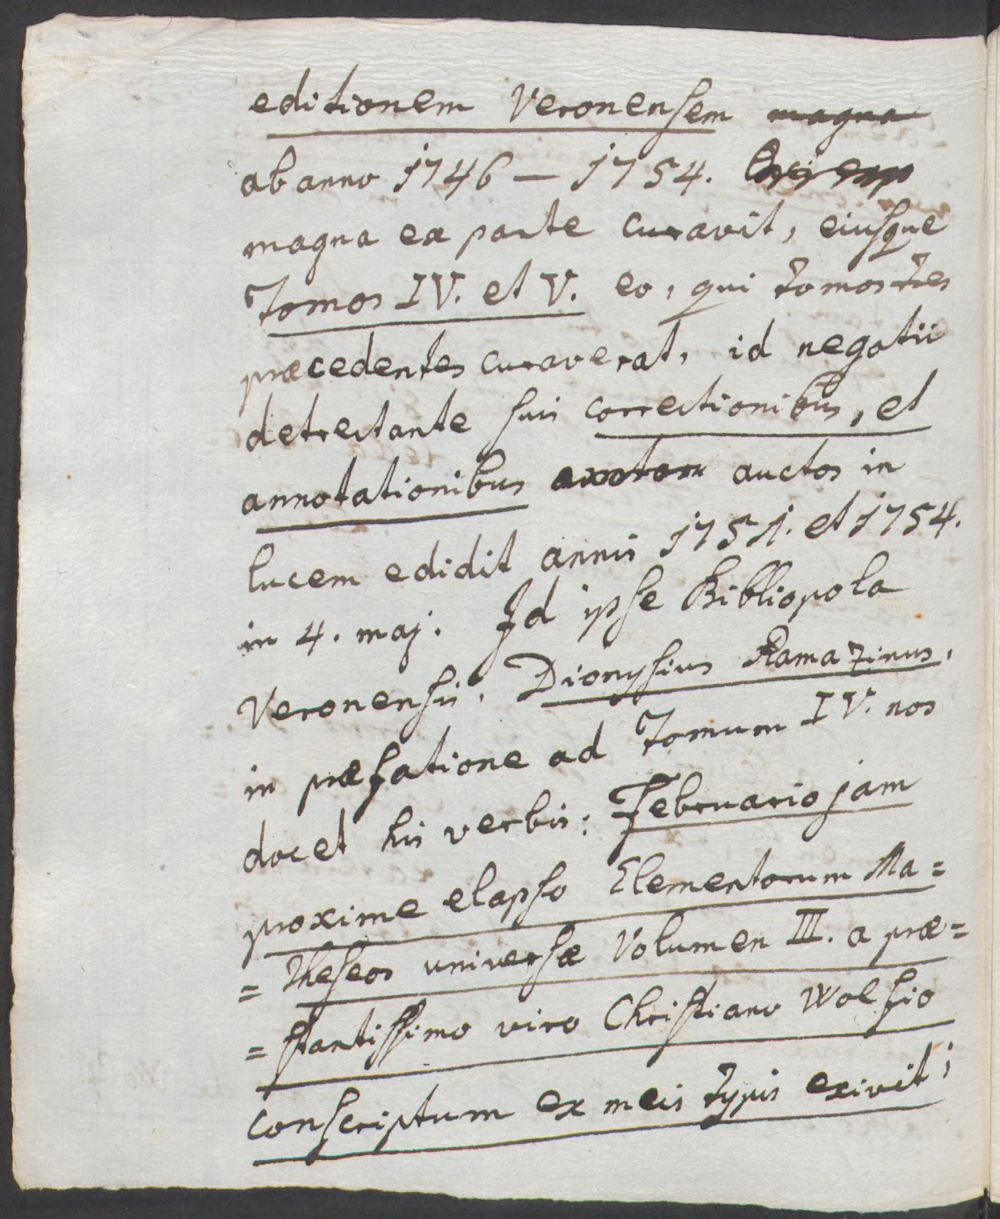 editionem Veronensem magna
ab anno 1746 — 1754.
magna ex parte curavit, eiusque
Tomos IV. et V. eo, qui tomos tres
præcedentes curaverat, id negotii
detrectante suis correctionibus, et
annotationibus auctos in
lucem edidit annis 1751. et 1754.
in 4. maj. Id ipse Bibliopola
Veronensis, Dionysius Ramazinus,
in præfatione ad Tomum IV. nos
docet his verbis: Februario jam
proxime elapso Elementorum Ma=
=theseos universæ Volumen III. a præ=
=stantissimo viro Christiano Wolfio
conscriptum ex meis typis exivit;